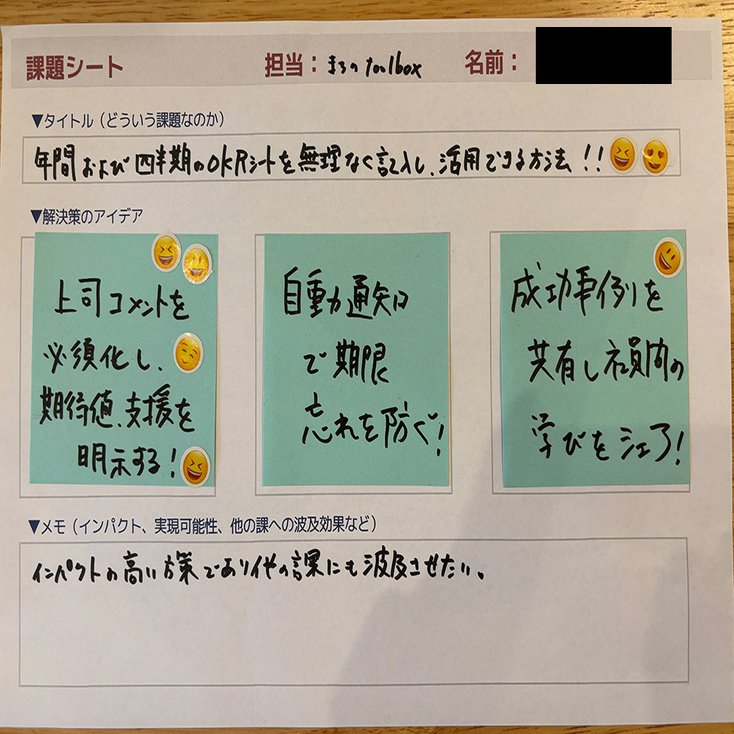 課題シート
担当： まるのtoolbox
名前：
▼タイトル（どういう課題なのか）
年間および四半期のOKRシートを無理なく記入し、活用できる方法！！
▼解決策のアイデア
上司コメントを
必須化し、
期待値、支援を
明示する！
自動通知
で期限
忘れを防ぐ！
成功事例を
共有し社員間の
学びをシェア！
▼メモ（インパクト、実現可能性、他の課への波及効果など）
インパクトの高い方策であり他の課にも波及させたい。